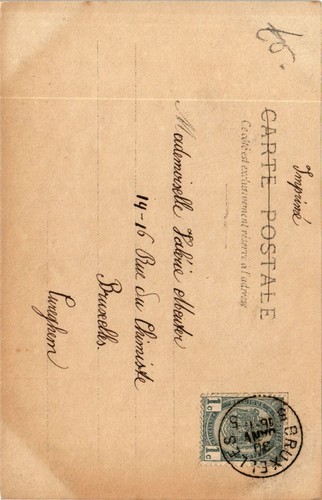 Imprimé
CARTE POSTALE
Ce côté est exclusivement réservé à l'adresse
Mademoiselle Valérie
14-16 Rue du Chimiste
Bruxelles
Cureghem
1c 1c
BRUXELLES 5